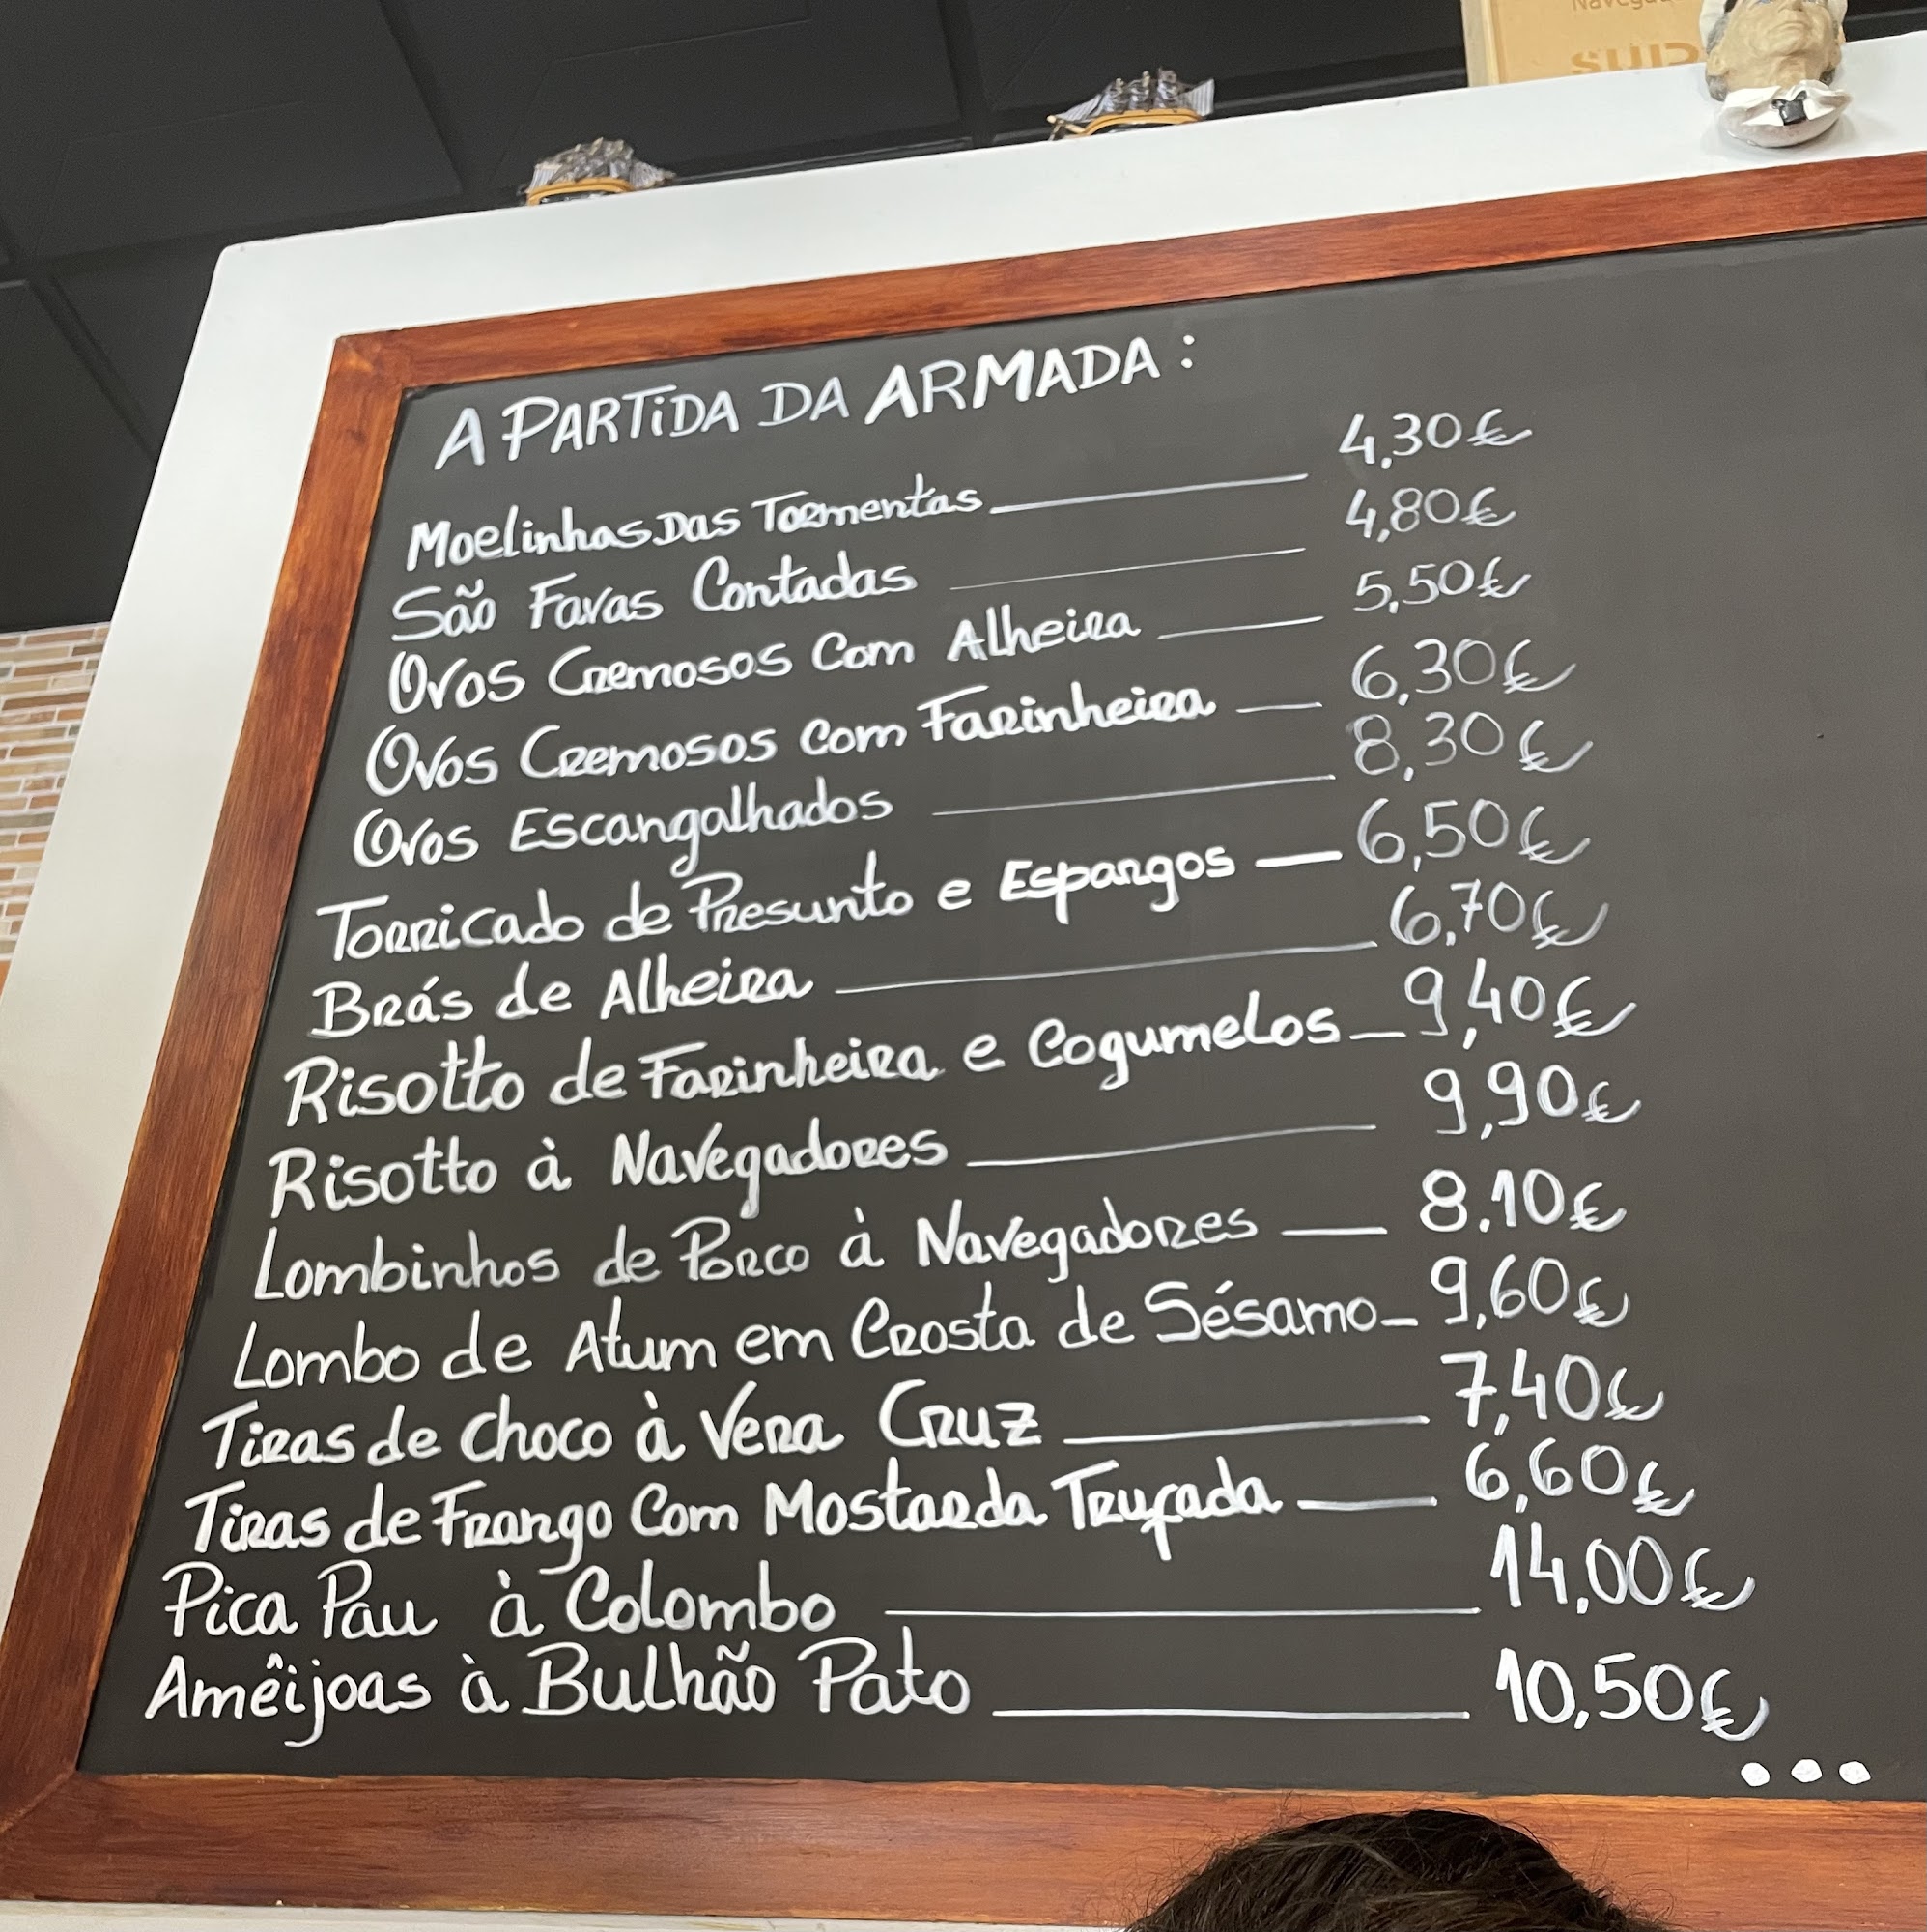 A PARTIDA DA ARMADA :
Moelinhas Das Tormentas 4,30€
São Favas Contadas 4,80€
Ovos Cremosos Com Alheira 5,50€
Ovos Cremosos Com Farinheira 6,30€
Ovos Escangalhados 8,30€
Torricado de Presunto e Espargos 6,50€
Brás de Alheira 6,70€
Risotto de Farinheira e Cogumelos 9,40€
Risotto à Navegadores 9,90€
Lombinhos de Porco à Navegadores 8.10€
Lombo de Atum em Crosta de Sésamo 9,60€
Tiras de Choco à Vera Cruz 7,40€
Tiras de Frango Com Mostarda Trufada 6,60€
Pica Pau à Colombo 14,00€
Amêijoas à Bulhão Pato 10,50€
...